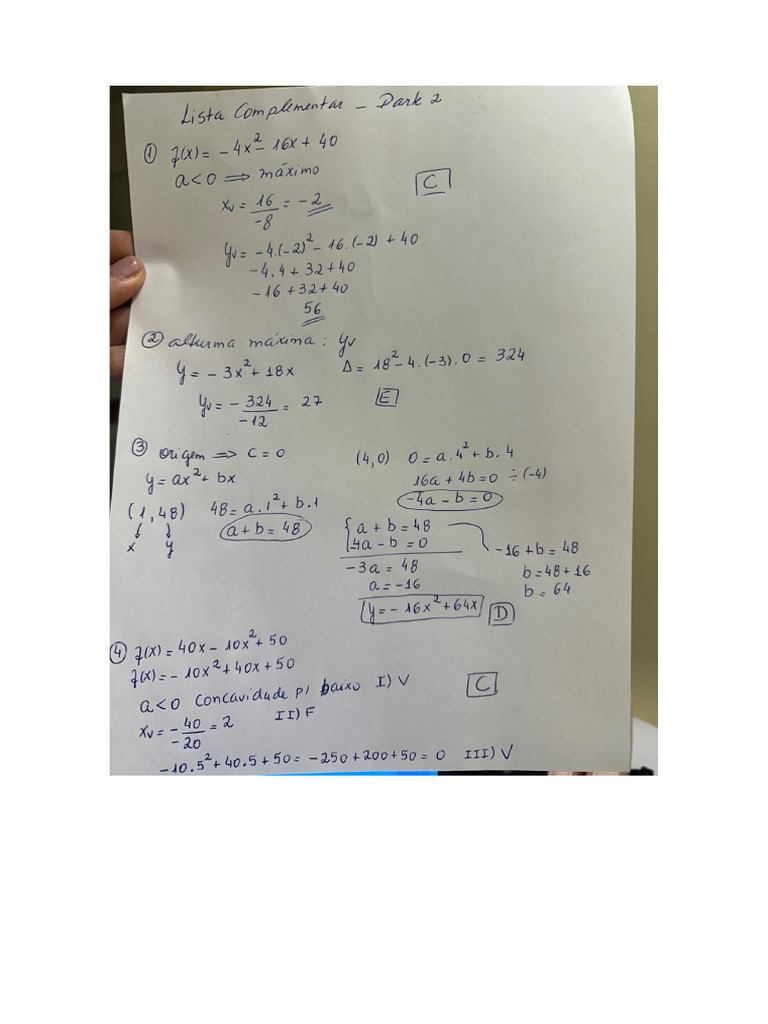 Lista Complementar - Park 2
① f(x) = -4x² - 16x + 40
a < 0 ⟹ máximo
C
xᵥ = 16/-8 = -2
yᵥ = -4.(-2)² - 16.(-2) + 40
-4.4 + 32 + 40
-16 + 32 + 40
56
② alturma máxima: yᵥ
y = -3x² + 18x
Δ = 18² - 4.(-3).0 = 324
yᵥ = -324/-12 = 27
E
③ origem ⟹ c = 0
y = ax² + bx
(1, 48)
x y
48 = a.1² + b.1
a + b = 48
(4,0) 0 = a.4² + b.4
16a + 4b = 0 ÷(-4)
-4a - b = 0
{ a + b = 48
-4a - b = 0
-3a = 48
a = -16
y = -16x² + 64x
-16 + b = 48
b = 48 + 16
b = 64
D
④ f(x) = 40x - 10x² + 50
f(x) = -10x² + 40x + 50
a < 0 Concavidade p/ baixo I) V
C
xᵥ = -40/-20 = 2 II) F
-10.5² + 40.5 + 50 = -250 + 200 + 50 = 0 III) V